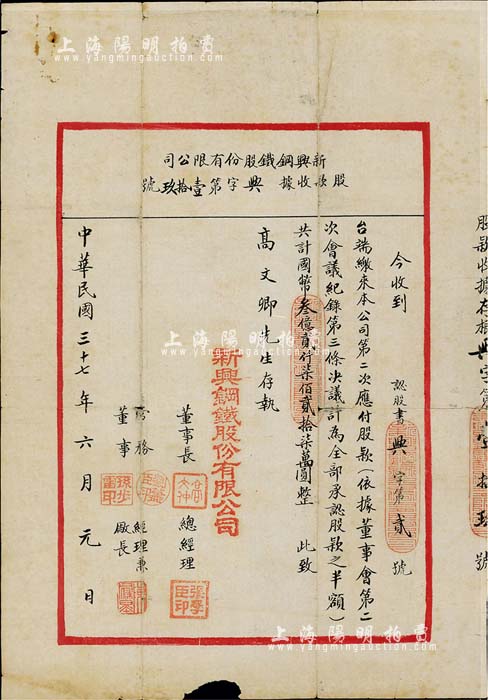 上海陽明拍賣
www.yangmingauction.com
新興鋼鐵股份有限公司
股款收據 興字第壹拾玖號
今收到 認股書興字第貳號
台端繳來本公司第二次應付股款(依據董事會第二
次會議紀錄第三條決議計為全部承認股款之半額)
共計國幣叁億貳仟柒佰貳拾柒萬圓整 此致
高文卿先生存執
新興鋼鐵股份有限公司
董事長
總經理
常務董事
經理兼廠長
中華民國三十七年六月元日
股款收據存根興字第壹拾玖號
上海陽明拍賣
www.yangmingauction.com